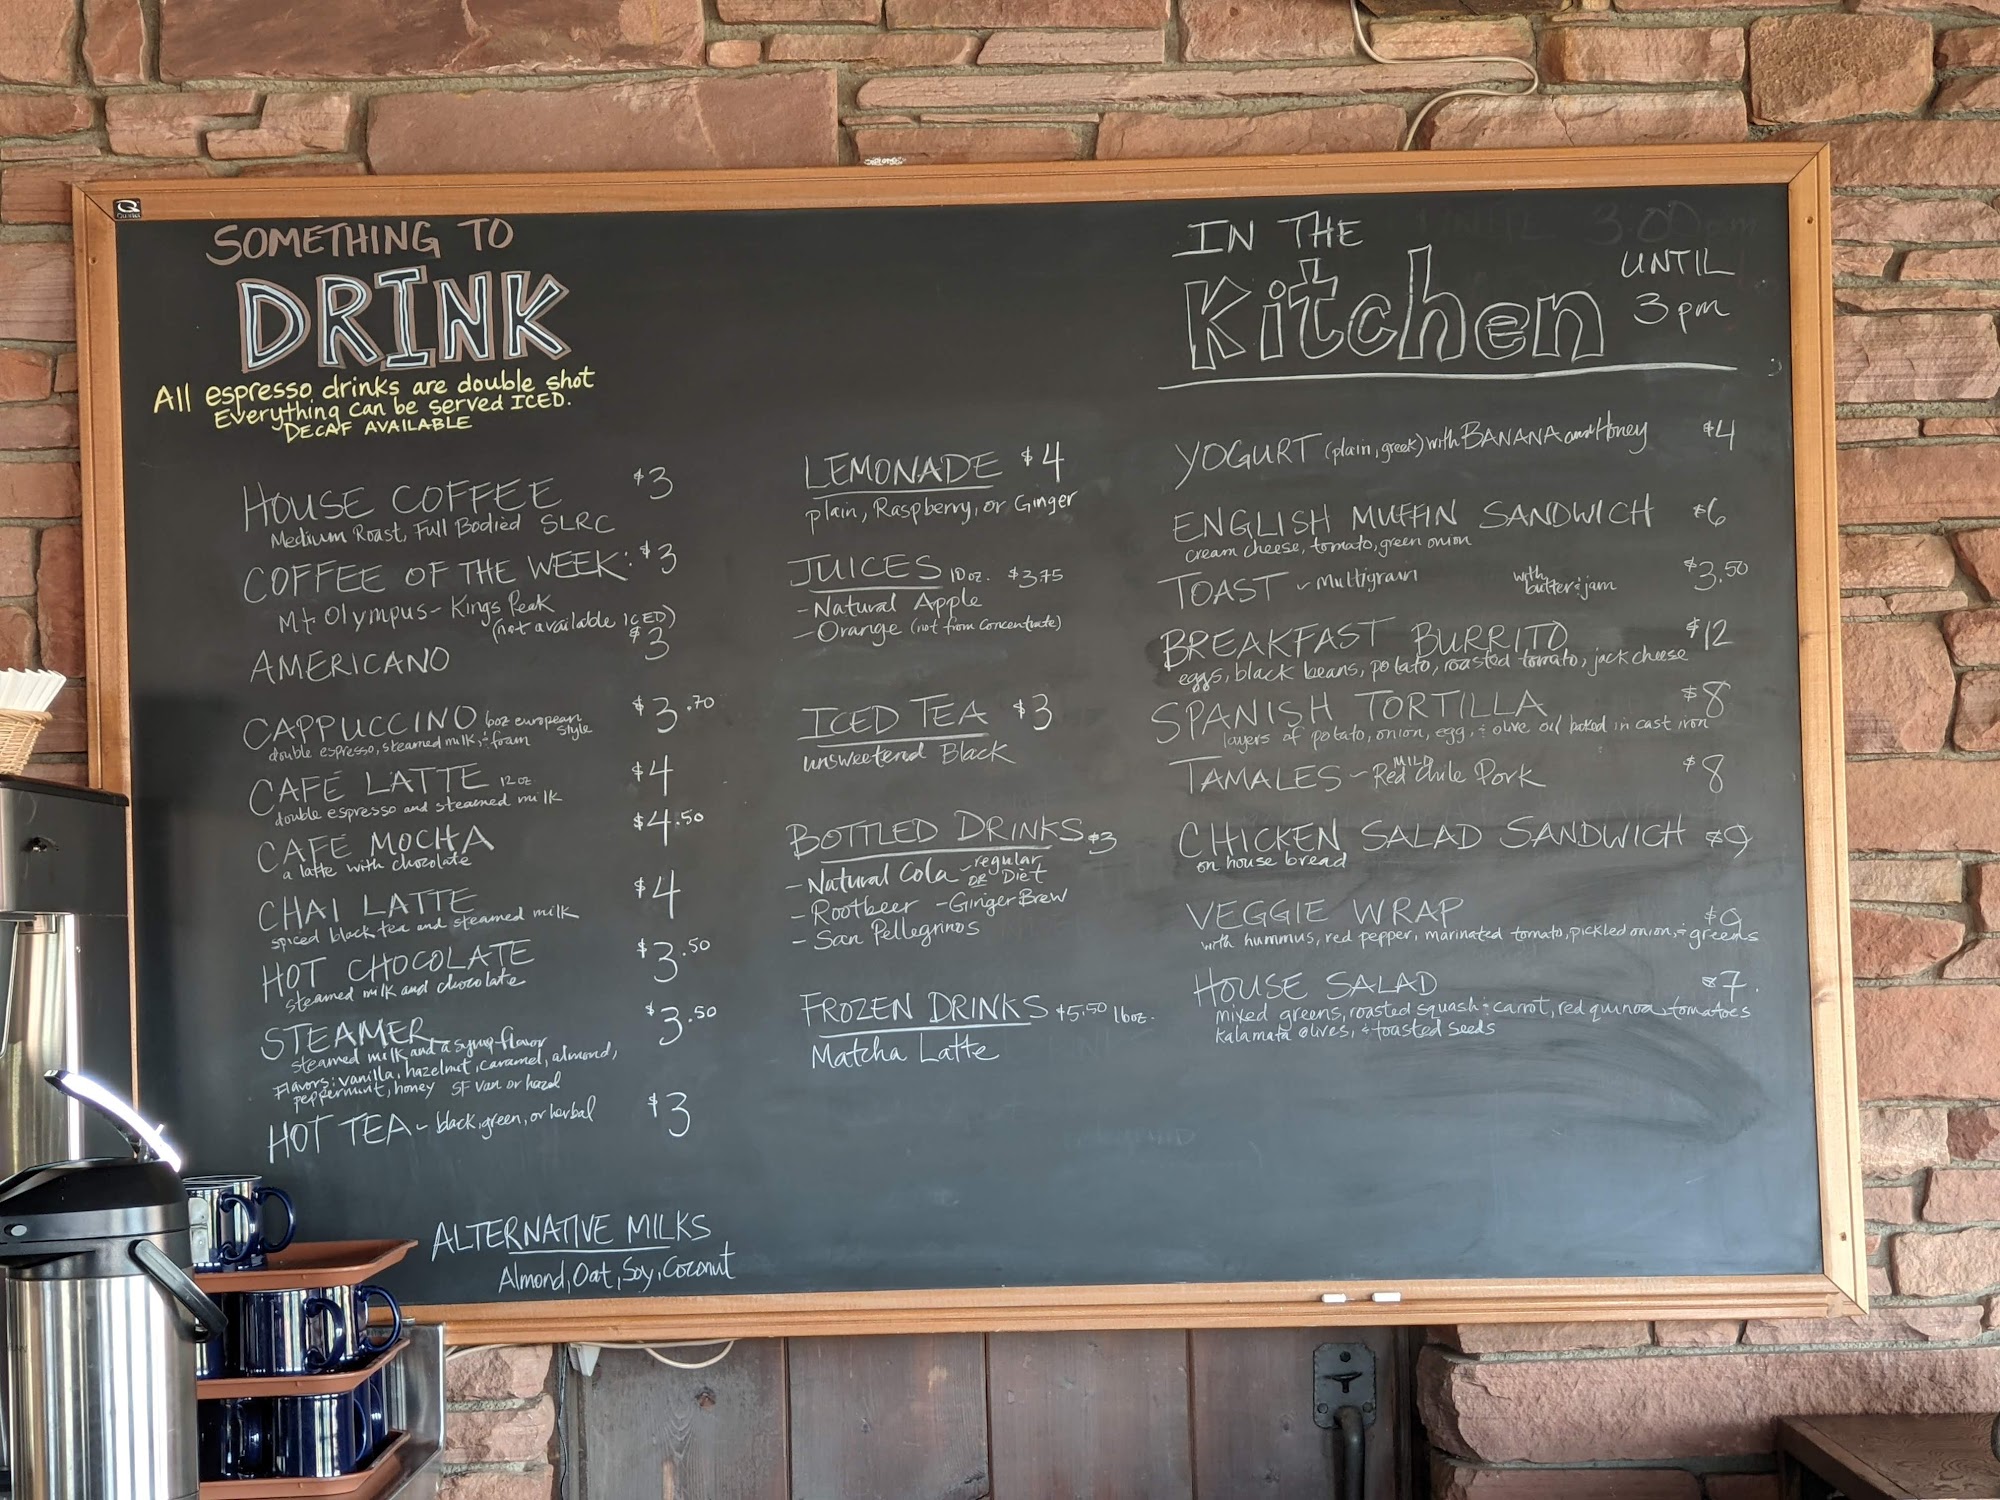 SOMETHING TO
DRINK
All espresso drinks are double shot
Everything can be served ICED.
DECAF AVAILABLE
HOUSE COFFEE $3
Medium Roast, Full Bodied SLRC
COFFEE OF THE WEEK: $3
Mt Olympus - Kings Peak
(not available ICED)
AMERICANO $3
CAPPUCCINO 6oz european style $3.70
double espresso, steamed milk, & foam
CAFÉ LATTE 12oz $4
double espresso and steamed milk
CAFÉ MOCHA $4.50
a latte with chocolate
CHAI LATTE $4
spiced black tea and steamed milk
HOT CHOCOLATE $3.50
steamed milk and chocolate
STEAMER $3.50
steamed milk and a syrup flavor
Flavors: vanilla, hazelnut, caramel, almond,
peppermint, honey SF van or hazel
HOT TEA - black, green, or herbal $3
ALTERNATIVE MILKS
Almond, Oat, Soy, Coconut
LEMONADE $4
plain, Raspberry, or Ginger
JUICES 10oz. $3.75
- Natural Apple
- Orange (not from concentrate)
ICED TEA $3
unsweetened Black
BOTTLED DRINKS $3
- Natural Cola - regular OR Diet
- Rootbeer - Ginger Brew
- San Pellegrinos
FROZEN DRINKS $5.50 16oz.
Matcha Latte
IN THE
Kitchen
UNTIL
3pm
YOGURT (plain, greek) with BANANA and Honey $4
ENGLISH MUFFIN SANDWICH $6
cream cheese, tomato, green onion
TOAST - multigrain with butter & jam $3.50
BREAKFAST BURRITO $12
eggs, black beans, potato, roasted tomato, jack cheese
SPANISH TORTILLA $8
layers of potato, onion, egg, & olive oil baked in cast iron
TAMALES - MILD Red Chile Pork $8
CHICKEN SALAD SANDWICH $9
on house bread
VEGGIE WRAP $9
with hummus, red pepper, marinated tomato, pickled onion, & greens
HOUSE SALAD $7.
mixed greens, roasted squash & carrot, red quinoa, tomatoes
kalamata olives, & toasted seeds